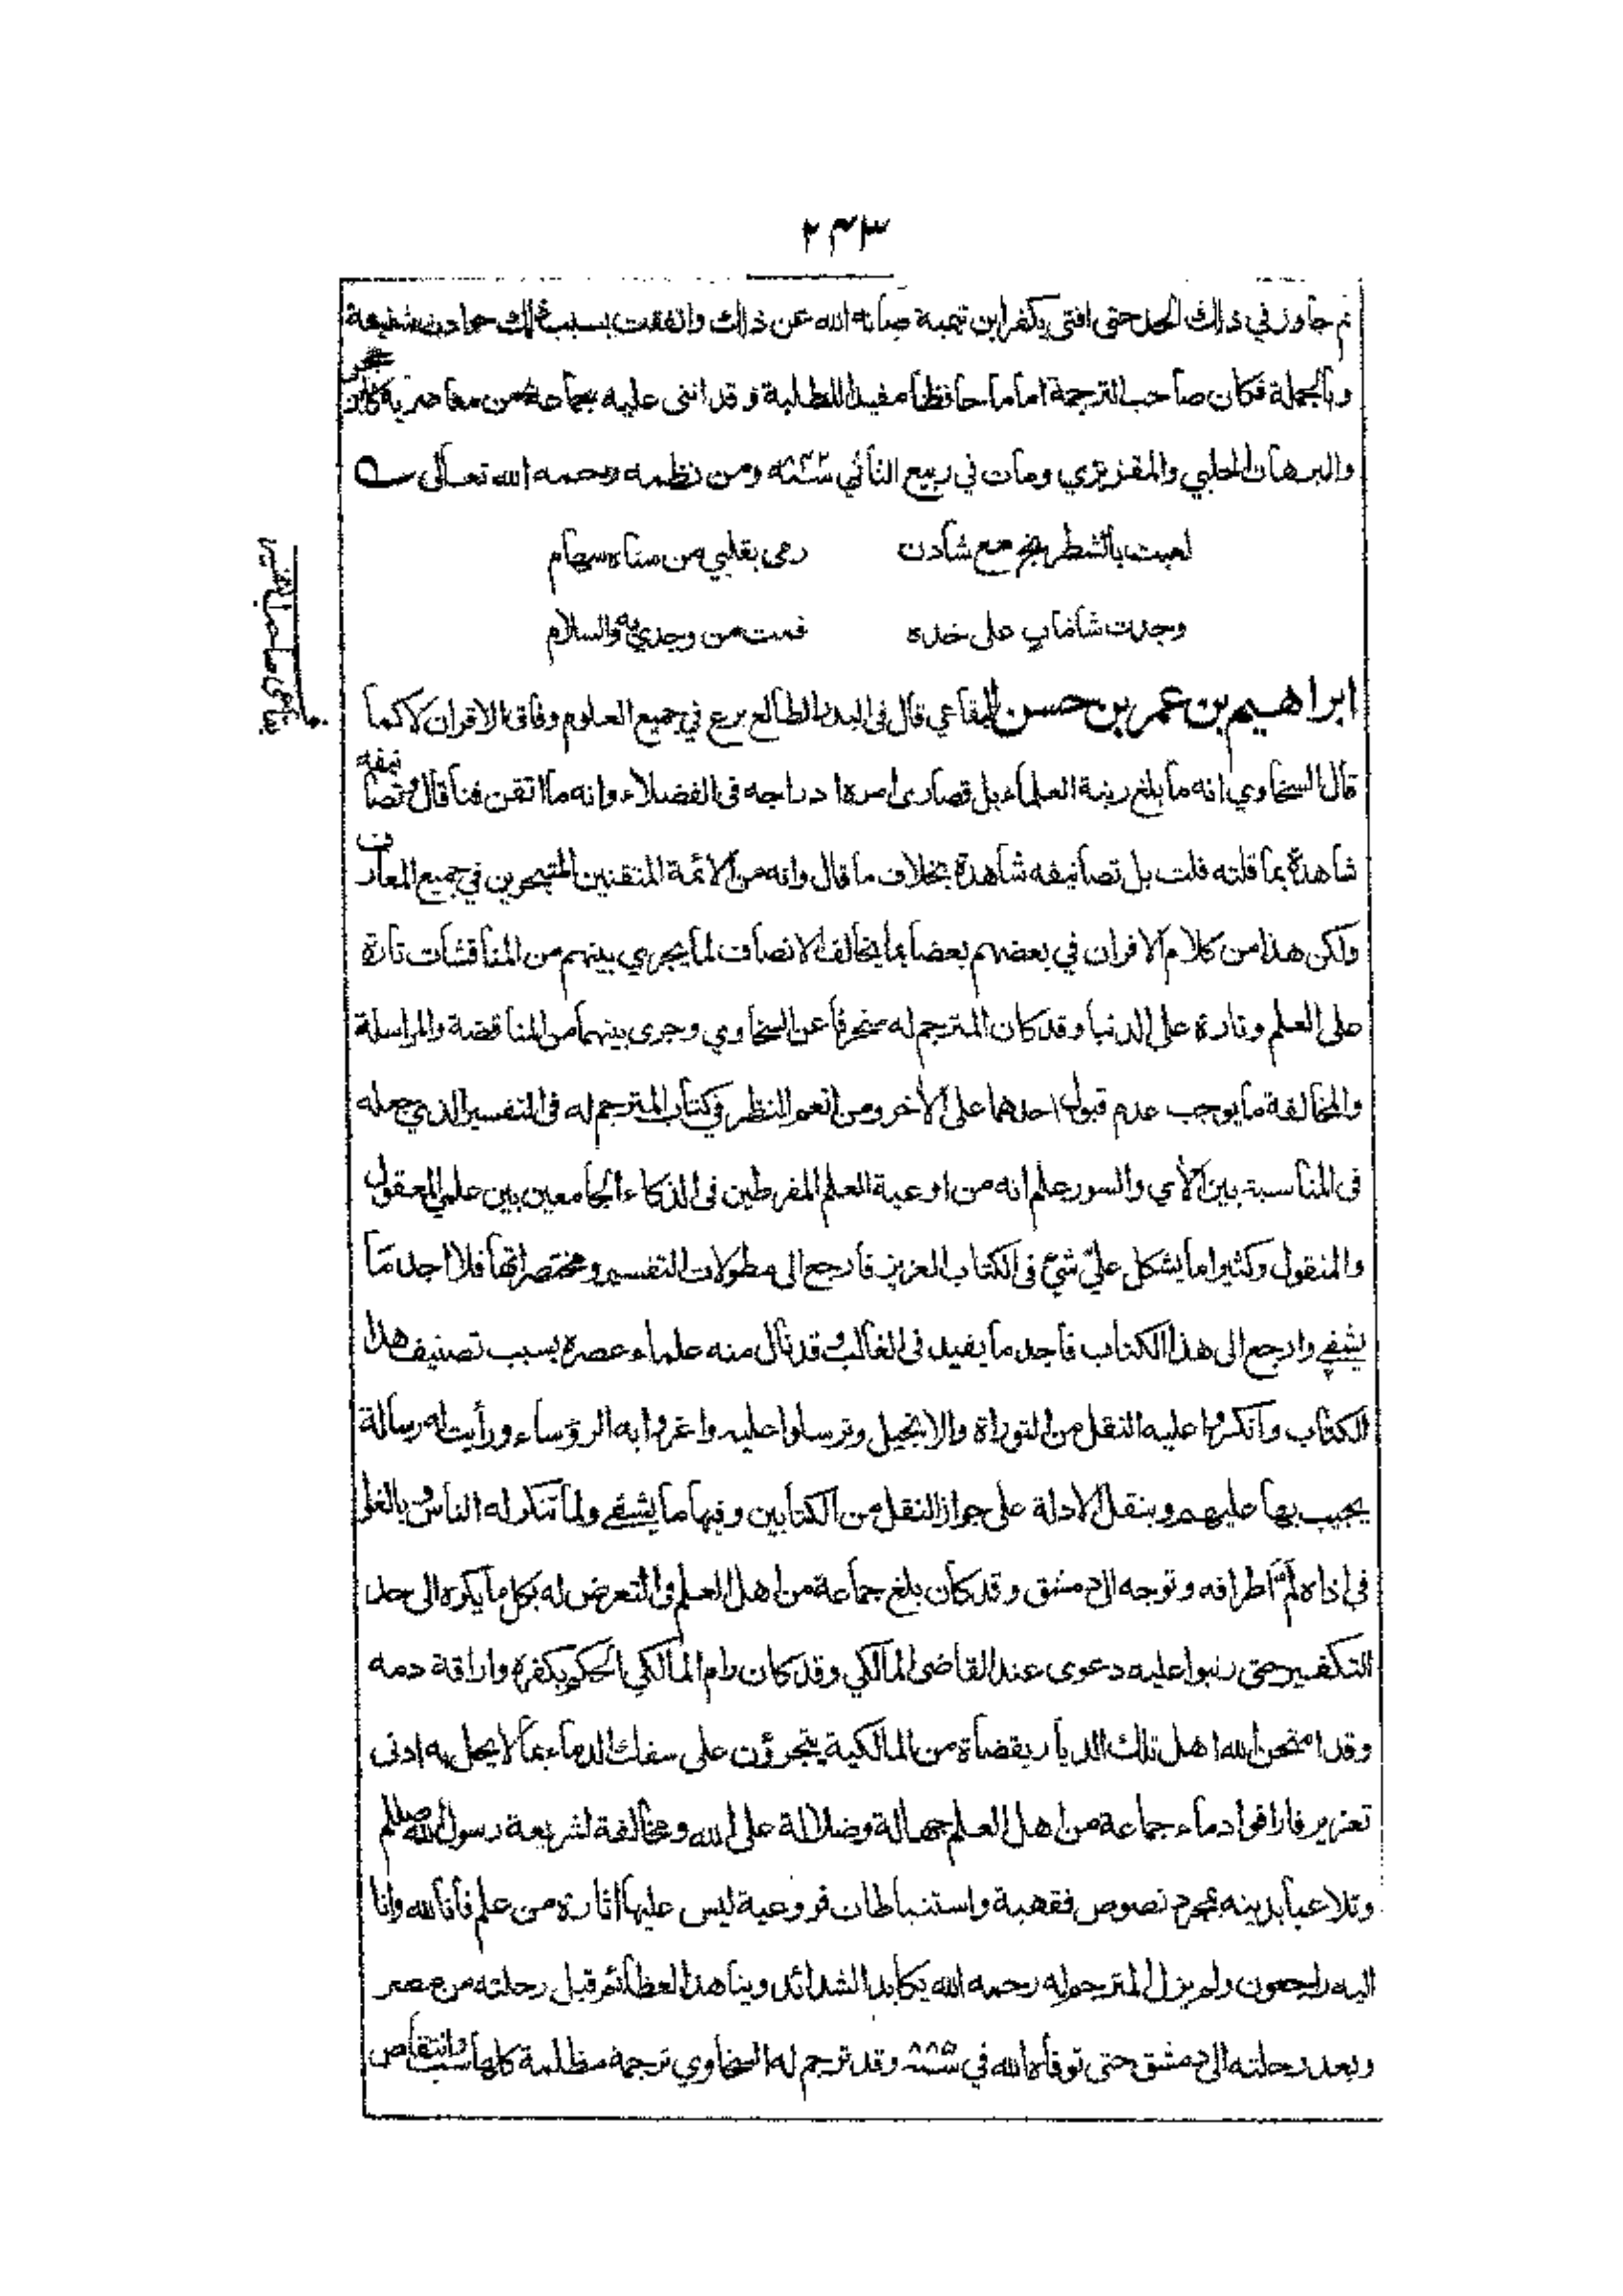 ٢٤٣
ثم جاوز في ذلك الحد حتى افتى بكفر ابن تيمية صانه الله عن ذلك واتفقت بسبب ذلك حوادث شنيعة
وبالجملة فكان صاحب الترجمة اماما حافظا مفيدا للطلبة وقد اثنى عليه جماعة من معاصريه كابن حجر
والبرهان الحلبي والمقريزي ومات في ربيع الثاني سنة ٨٤٢ ومن نظمه رحمه الله تعالى
لعبت بالشطرنج مع شادن
رمى بقلبي من سناه سهام
وجدت شامات على خده
فمت من وجدي به والسلام
ابراهيم بن عمر بن حسن البقاعي قال فى البدر الطالع برع في جميع العلوم وفاق الاقران لا كما
قال السخاوي انه ما بلغ رتبة العلماء بل قصارى امره ادراجه فى الفضلاء وانه ما اتقن فنا قال وتصانيفه
شاهدة بما قلته قلت بل تصانيفه شاهدة بخلاف ما قال وانه من الائمة المتقنين المتبحرين في جميع المعارف
ولكن هذا من كلام الاقران في بعضهم بعضا بما يخالف الانصاف لما يجري بينهم من المناقشات تارة
على العلم وتارة على الدنيا وقد كان المترجم له منحرفا عن السخاوي وجرى بينهما من المناقضة والمراسلة
والمخالفة ما يوجب عدم قبول احدهما على الآخر ومن انعم النظر في كتاب المترجم له فى التفسير الذي جعله
فى المناسبة بين الآي والسور علم انه من اوعية العلم المفرطين فى الذكاء الجامعين بين علمي المعقول
والمنقول وكثيرا ما يشكل عليّ شيء فى الكتاب العزيز فارجع الى مطولات التفسير ومختصراتها فلا اجد ما
يشفي وارجع الى هذا الكتاب فاجد ما يفيد فى الغالب وقد نال منه علماء عصره بسبب تصنيف هذا
الكتاب وانكروا عليه النقل من التوراة والانجيل وترسلوا عليه واغروا به الرؤساء ورأيت له رسالة
يجيب بها عليهم وينقل الادلة على جواز النقل من الكتابين وفيها ما يشفي ولما تنكر له الناس وبالغوا
في اذاه لمّ اطرافه وتوجه الى دمشق وقد كان بلغ جماعة من اهل العلم فى التعرض له بكل ما يكره الى حد
التكفير حتى رتبوا عليه دعوى عند القاضى المالكي وقد كان رام المالكي الحكم بكفره واراقة دمه
وقد امتحن الله اهل تلك الديار بقضاة من المالكية يتجرؤن على سفك الدماء بما لا يحل به ادنى
تعزير فاراقوا دماء جماعة من اهل العلم جهالة وضلالة على الله ومخالفة لشريعة رسول الله صللم
وتلاعبا بدينه بمجرد نصوص فقهية واستنباطات فروعية ليس عليها اثارة من علم فانا لله وانا
اليه راجعون ولم يزل المترجم له رحمه الله يكابد الشدائد ويناهد العظائم قبل رحلته من مصر
وبعد رحلته الى دمشق حتى توفاه الله في سنة ٨٨٥ وقد ترجم له السخاوي ترجمة مظلمة كلها سب وانتقاص